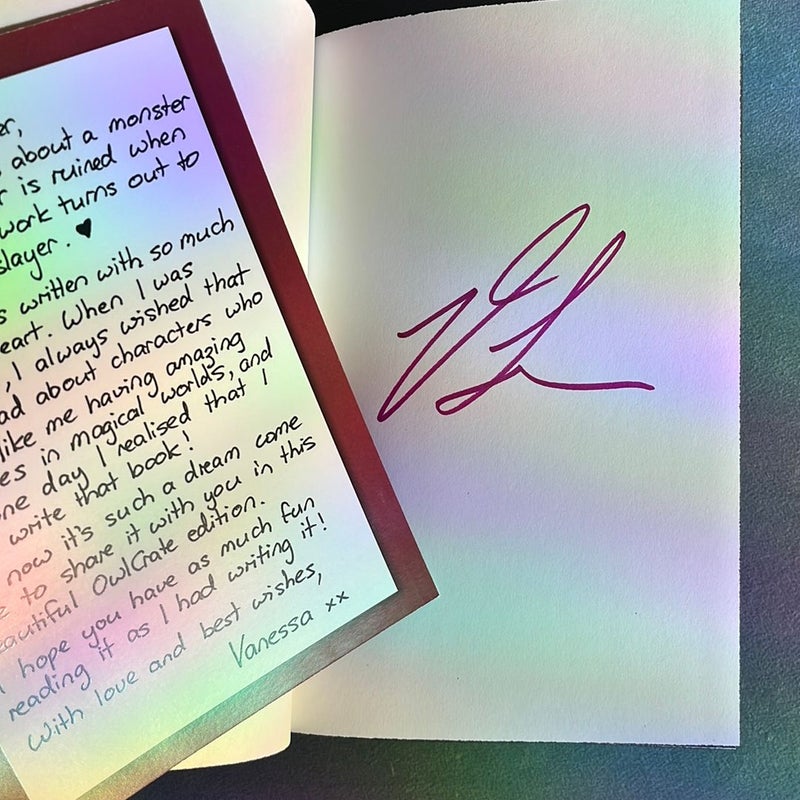 er,
about a monster
r is ruined when
work turns out to
slayer. ♥
s written with so much
eart. When I was
, I always wished that
ad about characters who
like me having amazing
es in magical worlds, and
ne day I realised that I
write that book!
now it's such a dream come
e to share it with you in this
eautiful OwlCrate edition.
I hope you have as much fun
reading it as I had writing it!
With love and best wishes,
Vanessa xx